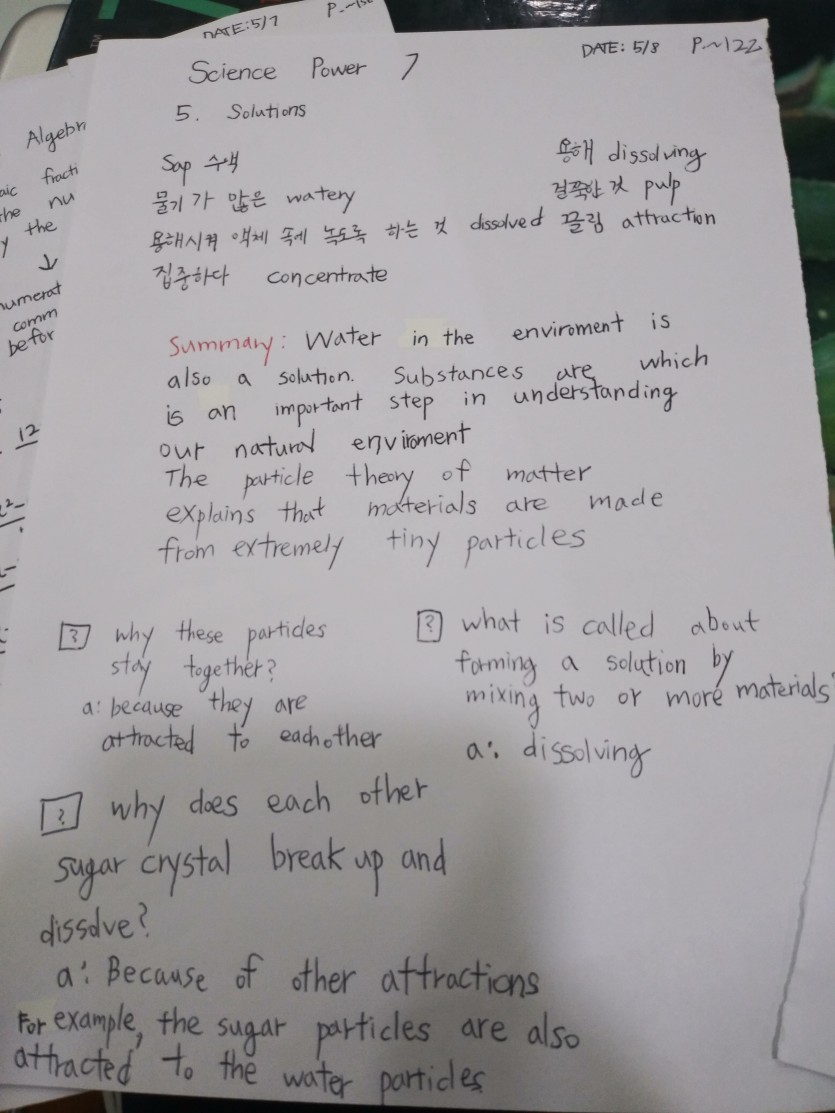 DATE: 5/7
DATE: 5/8 P~122
Science Power 7
5. Solutions
Sap 수액
용해 dissolving
물기가 많은 watery
걸쭉한 것 pulp
용해시켜 액체 속에 녹도록 하는 것 dissolved 끌림 attraction
집중하다 concentrate
Summary: Water in the enviroment is
also a solution. Substances are which
is an important step in understanding
our natural enviroment
The particle theory of matter
explains that materials are made
from extremely tiny particles
? why these particles
stay together?
a: because they are
attracted to eachother
? what is called about
forming a solution by
mixing two or more materials
a: dissolving
? why does each other
sugar crystal break up and
dissolve?
a: Because of other attractions
For example, the sugar particles are also
attracted to the water particles
Algebr
fracti
the nu
y the
↓
numerat
comm
befor
12